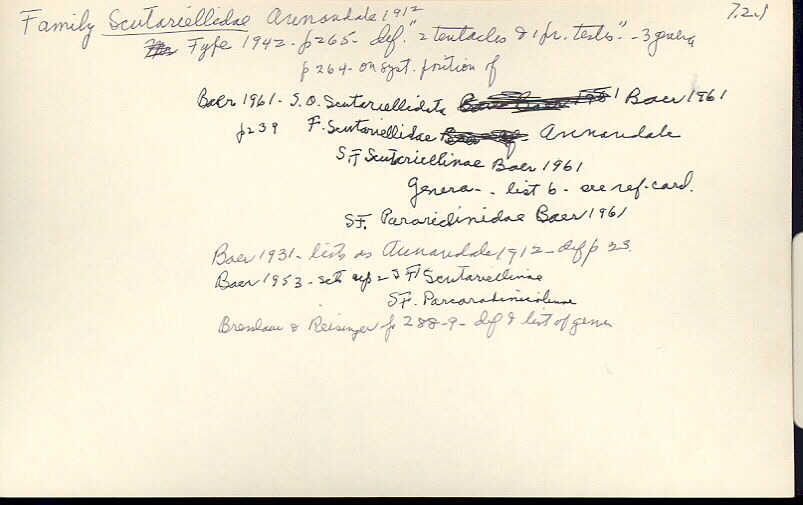 Family Scutariellidae Annandale 1912 7.2.1
Fyfe 1942 - p265 - def. "2 tentacles & 1 pr. testes." - 3 genera
p 264 - on syst. position of
Baer 1961 - S.O. Scutariellidata Baer 1961
p239 F. Scutariellidae Annandale
SF Scutariellinae Baer 1961
Genera - list 6 - see ref. card.
SF. Baer 1961
Baer 1931 - lists as Annandale 1912 - def p 23.
Baer 1953 - sets up 2 SF Scutariellinae
SF.
Bresslau & Reisinger p 288-9 - def & list of genera